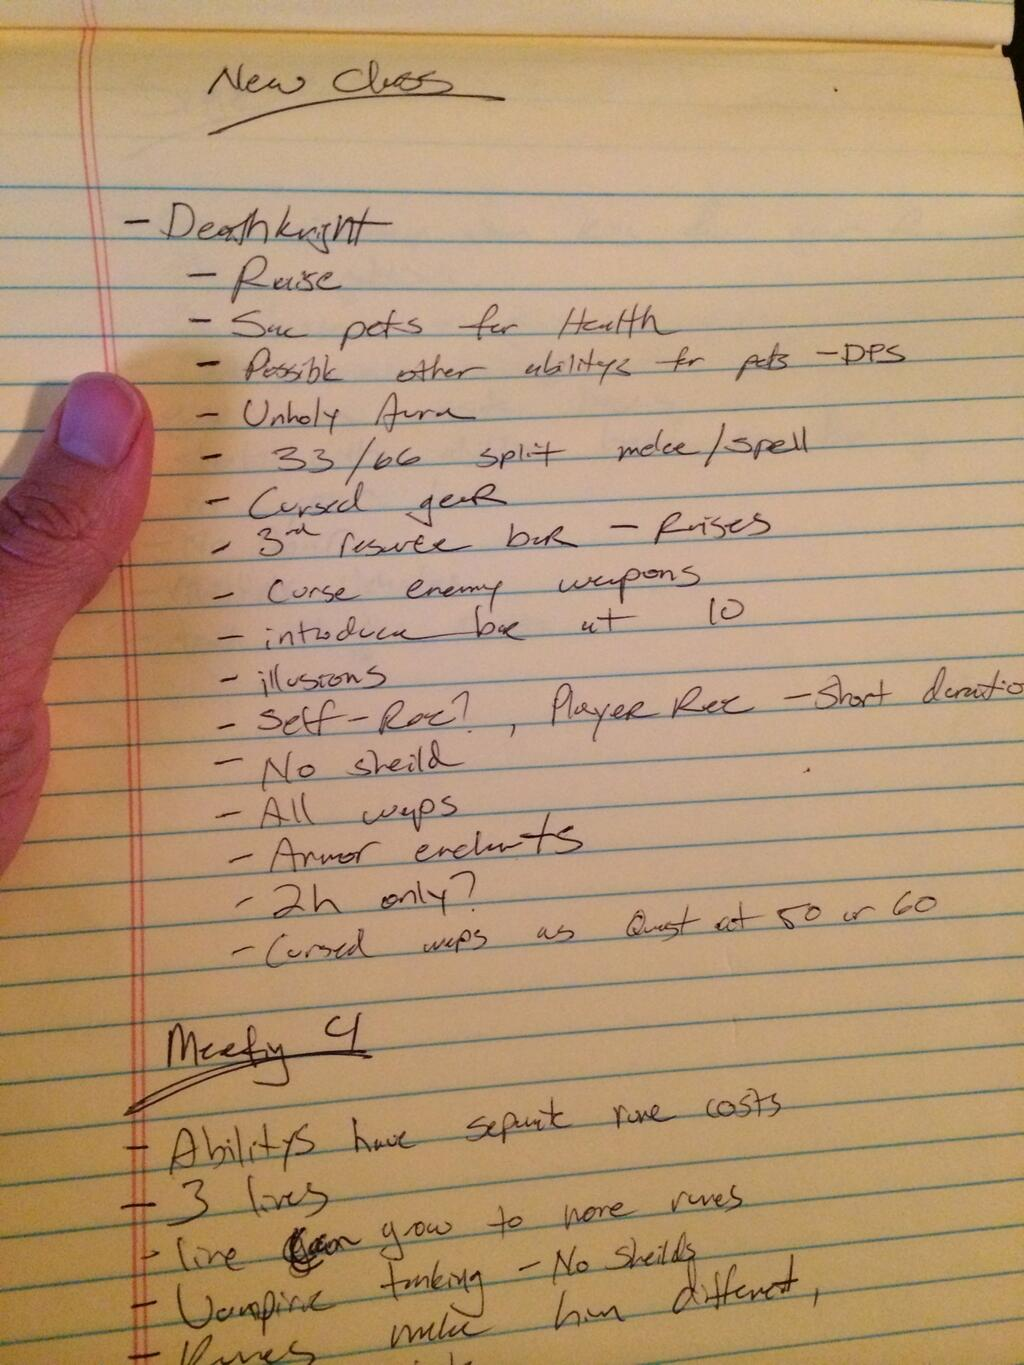 New Class
- Deathknight
- Raise
- Sac pets for Health
- Possible other abilitys for pets - DPS
- Unholy Aura
- 33/66 split melee/spell
- Cursed geaR
- 3rd resource baR - Raises
- Curse enemy weapons
- introduce bar at 10
- illusions
- Self-Rez?, PlayeR Rez - Short duratio
- No sheild
- All weps
- Armor enchants
- 2h only?
- Cursed weps as Quest at 50 or 60
4
- Abilitys have seperate rune costs
- 3 lines
- line can grow to more runes
- Vampiric tanking - No Sheilds
- Runes make him different,